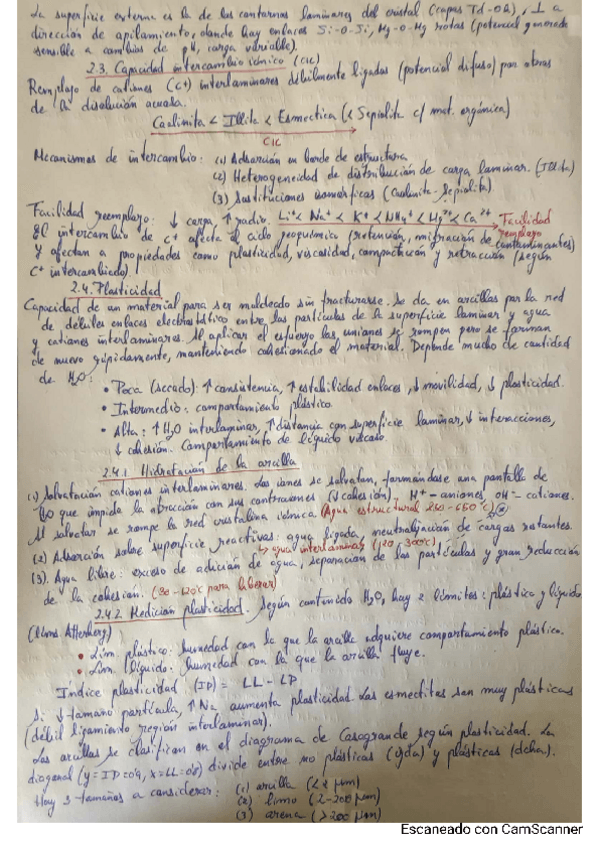 La superficie externa es la de los contornos laminares del cristal (capas Td-Oct), ⊥ a
dirección de apilamiento, donde hay enlaces Si-O-Si, Mg-O-Mg rotos (potencial generado
sensible a cambios de pH, carga variable).
2.3. Capacidad intercambio iónico (CIC)
Remplazo de cationes (C+) interlaminares débilmente ligados (potencial difuso) por otros
de la disolución acuosa.
Caolinita < Illita < Esmectica (< Sepiolita c/ mat. orgánica)
CIC
Mecanismos de intercambio: (1) Adsorción en borde de estructura
(2) Heterogeneidad de distribución de carga laminar. (Illita)
(3) Sustituciones isomórficas (Caolinita-Sepiolita).
Facilidad reemplazo: ↓ carga, ↑ radio. Li+ < Na+ < K+ < NH4+ < Mg2+ < Ca2+ Facilidad
remplazo
El intercambio de C+ afecta al ciclo geoquímico (retención, migración de contaminantes)
y afectan a propiedades como plasticidad, viscosidad, compactación y retracción (según
C+ intercambiado).
2.4. Plasticidad
Capacidad de un material para ser moldeado sin fracturarse. Se da en arcillas por la red
de débiles enlaces electrostático entre las partículas de la superficie laminar y agua
y cationes interlaminares. Al aplicar el esfuerzo las uniones se rompen pero se forman
de nuevo rápidamente, manteniendo cohesionado el material. Depende mucho de cantidad
de H2O:
• Poca (secado): ↑ consistencia, ↑ estabilidad enlaces, ↓ movilidad, ↓ plasticidad.
• Intermedio: comportamiento plástico.
• Alta: ↑ H2O interlaminar, ↑ distancia con superficie laminar, ↓ interacciones,
↓ cohesión. Comportamiento de líquido viscoso.
2.4.1. Hidratación de la arcilla
(1) Solvatación cationes interlaminares. Los iones se solvatan, formándose una pantalla de
H2O que impide la atracción con sus contraiones (↓ cohesión). H+ - aniones, OH- - cationes.
Al solvatar se rompe la red cristalina iónica. (Agua estructural
(2) Adsorción sobre superficie reactivas: agua ligada, neutralización de cargas restantes.
↳ agua interlaminar (120-300°C)
(3). Agua libre: exceso de adición de agua, separación de las partículas y gran reducción
de la cohesión. (80-120°C para liberar)
2.4.2. Medición plasticidad. Según contenido H2O, hay 2 límites: plástico y líquido
(límites Atterberg)
• Lím. plástico: humedad con la que la arcilla adquiere comportamiento plástico.
• Lím. líquido: humedad con la que la arcilla fluye.
Índice plasticidad (IP) = LL - LP
Si ↓ tamaño partícula, ↑ Na aumenta plasticidad. Las esmectitas son muy plásticas
(débil ligamiento región interlaminar).
Las arcillas se clasifican en el diagrama de Casagrande según plasticidad. La
diagonal divide entre no plásticas (izda) y plásticas (dcha).
Hay 3 tamaños a considerar: (1) arcilla (<2 μm)
(2) limo (2-200 μm)
(3) arena (>200 μm)
Escaneado con CamScanner